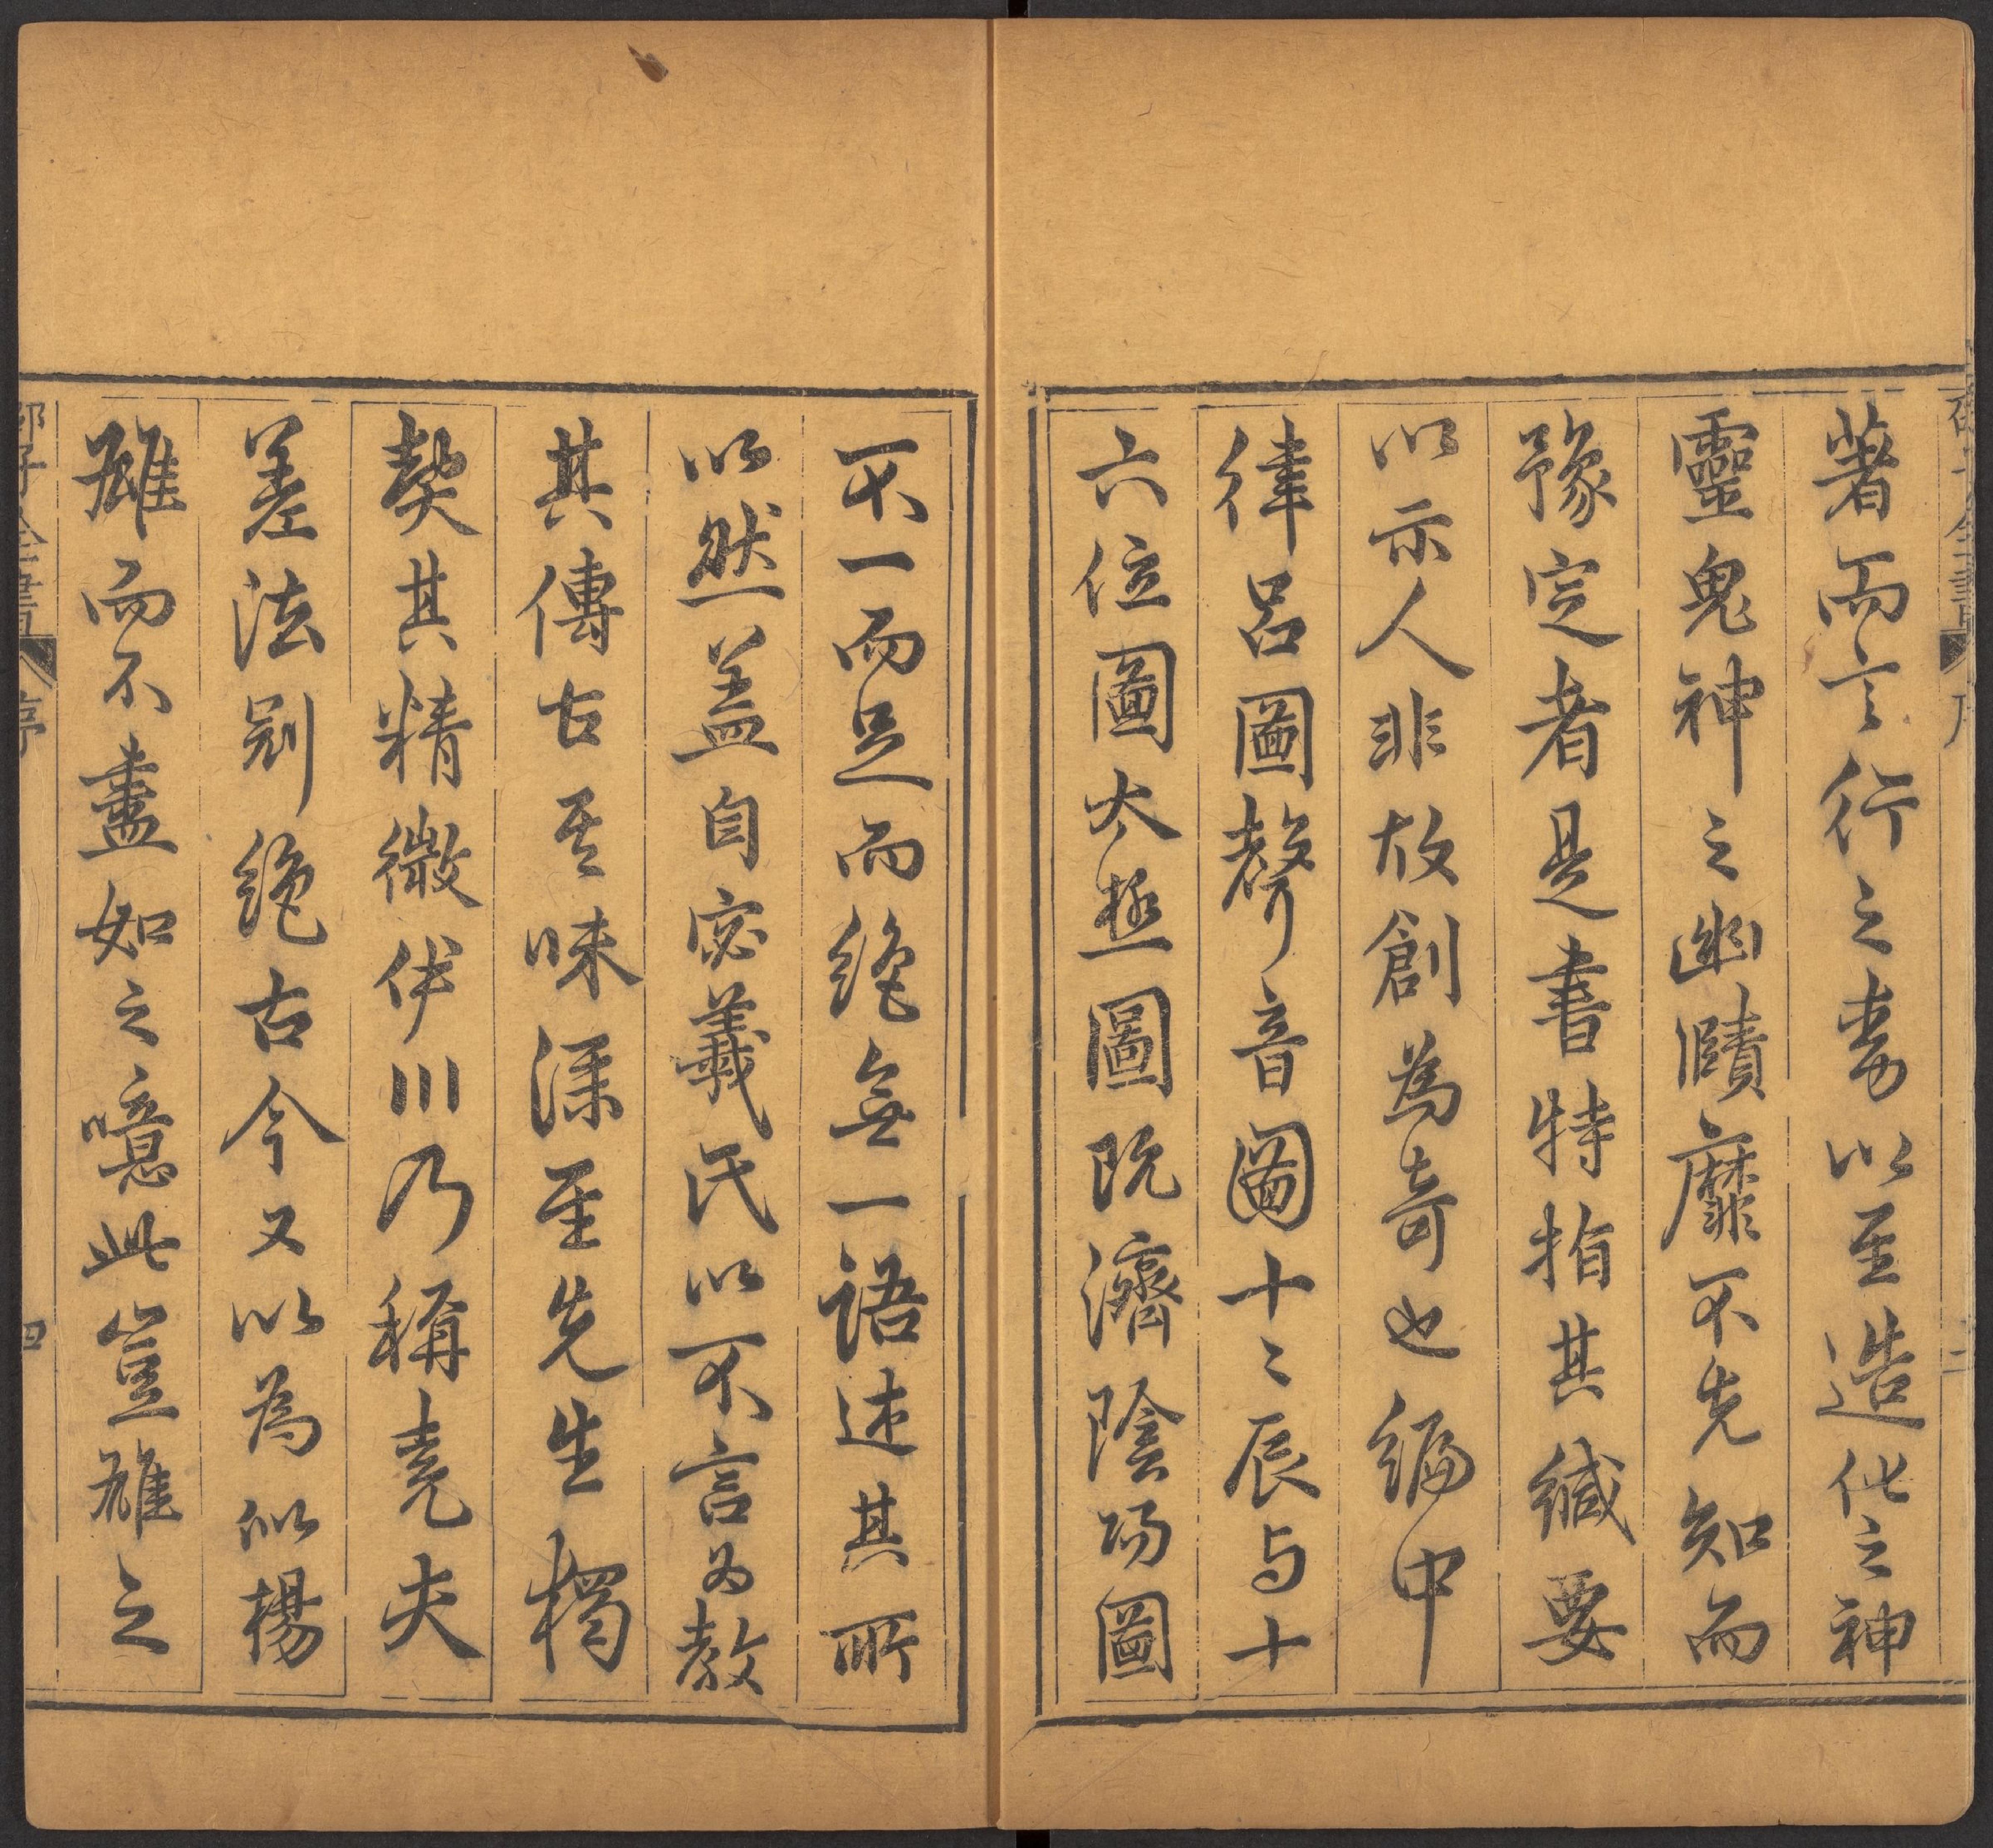 著而言行之表以至造化之神
靈鬼神之幽賾靡不先知而
豫定者是書特指其緘要
以示人非故創為奇也編中
律呂圖聲音圖十二辰与十
六位圖太極圖既濟陰陽圖
不一而足而絕無一語述其所
以然盖自宓羲氏以不言為教
其傳古其味深至先生獨
契其精微伊川乃稱堯夫
差法別絕古今又以為似楊
雄而不盡如之噫此豈雄之
邵子全書 序 四